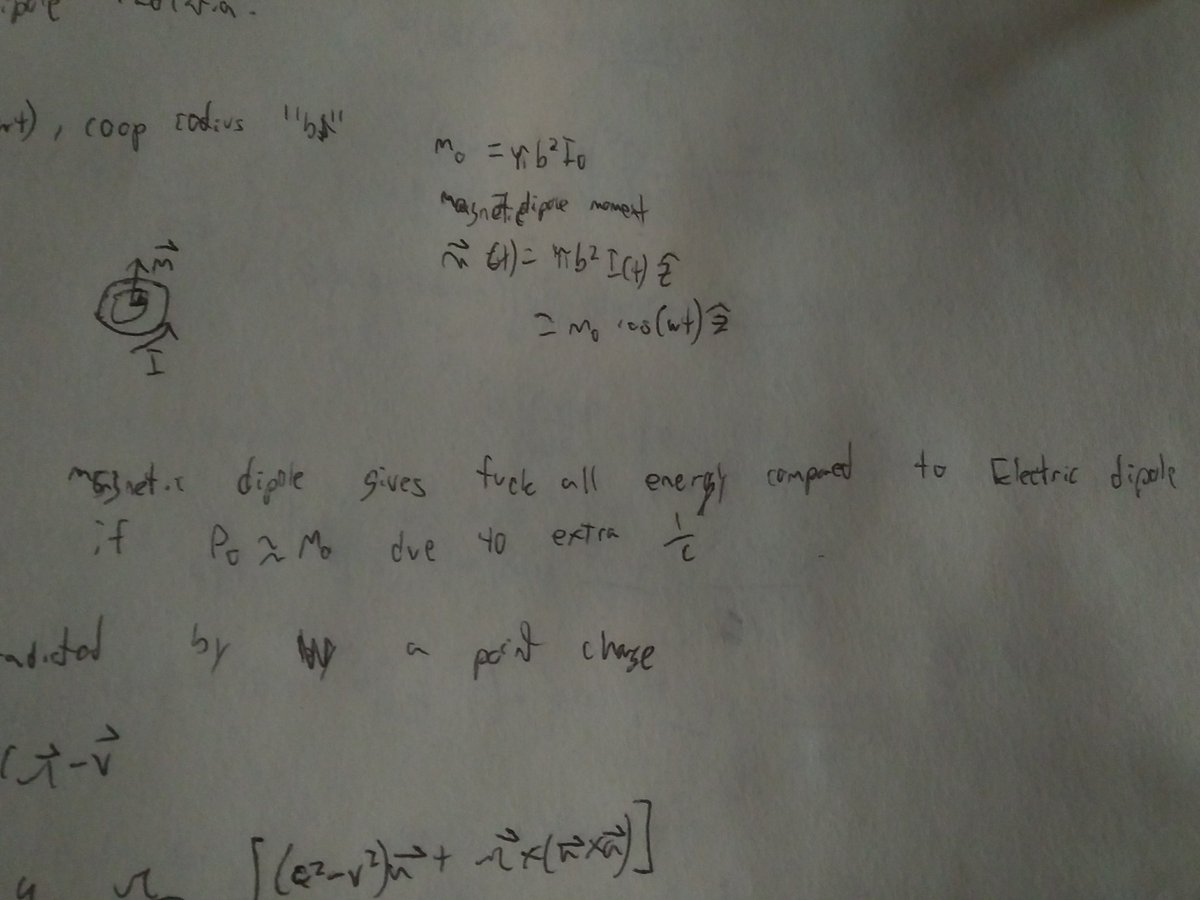 wt), loop radius "b"
m₀ = πb²I₀
magnetic dipole moment
m⃗(t) = πb² I(t) ẑ
= m₀ cos(wt) ẑ
m⃗
I
magnetic dipole gives fuck all energy compared to Electric dipole
if P₀ ≈ M₀ due to extra 1/c
by a point charge
- v⃗
[(c²-v²)u⃗ + r⃗×(u⃗×a⃗)]